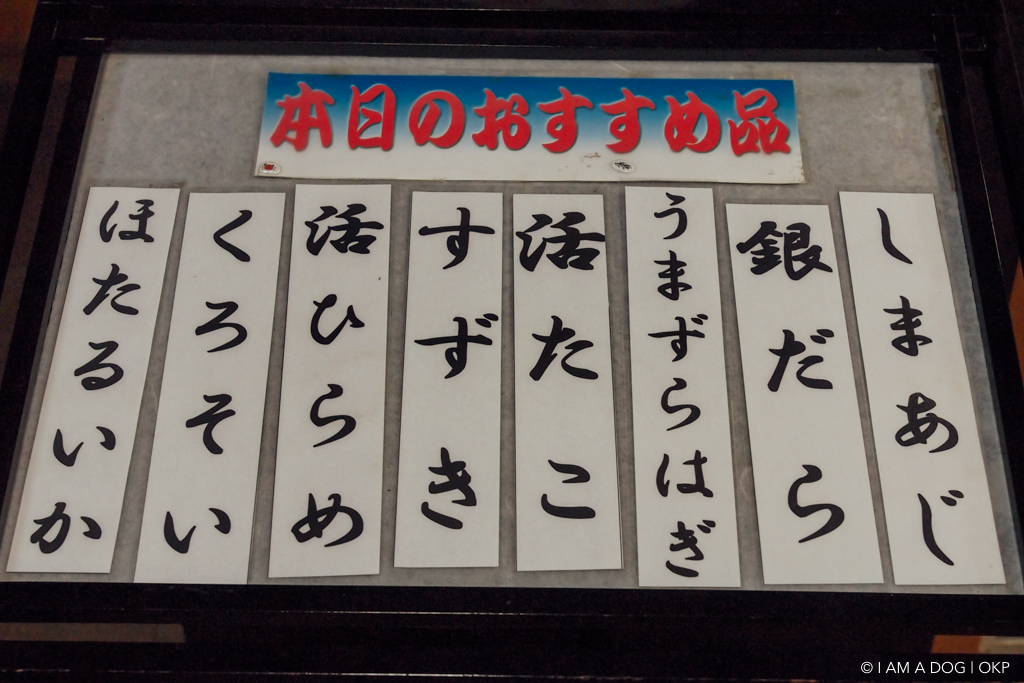 本日のおすすめ品
しまあじ
銀だら
うまずらはぎ
活たこ
すずき
活ひらめ
くろそい
ほたるいか
© I AM A DOG | OKP